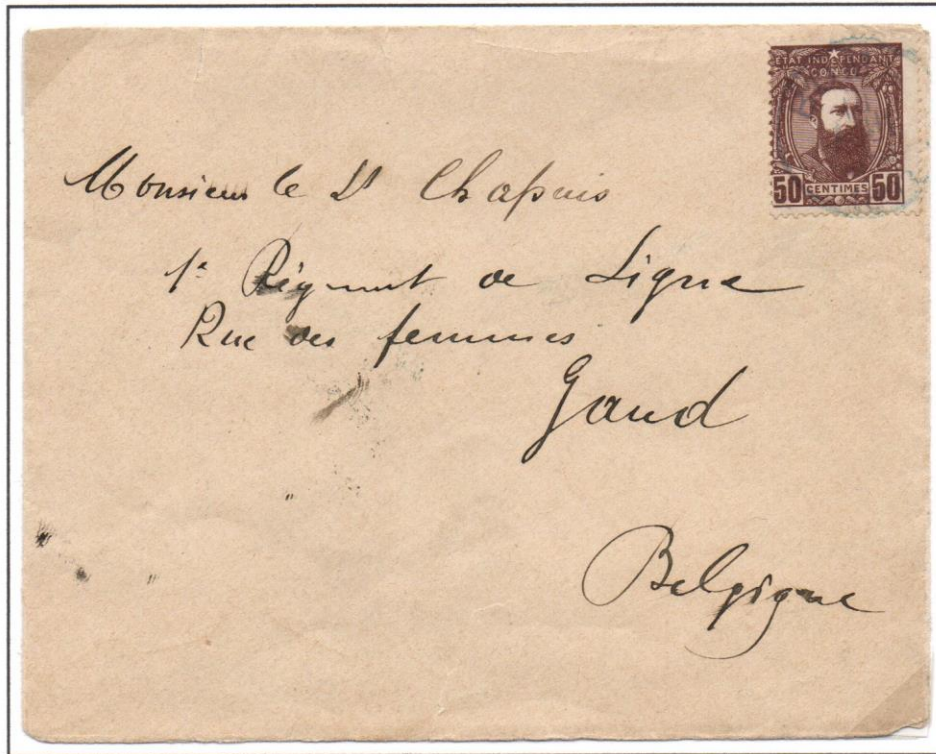 ÉTAT INDÉPENDANT
CONGO
50 CENTIMES 50
Monsieur le Lt Chapuis
1e Régiment de Ligne
Rue des femmes
Gand
Belgique